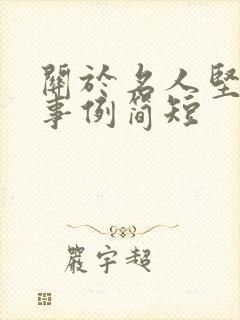 關於名人堅
事例簡短
嚴宇超